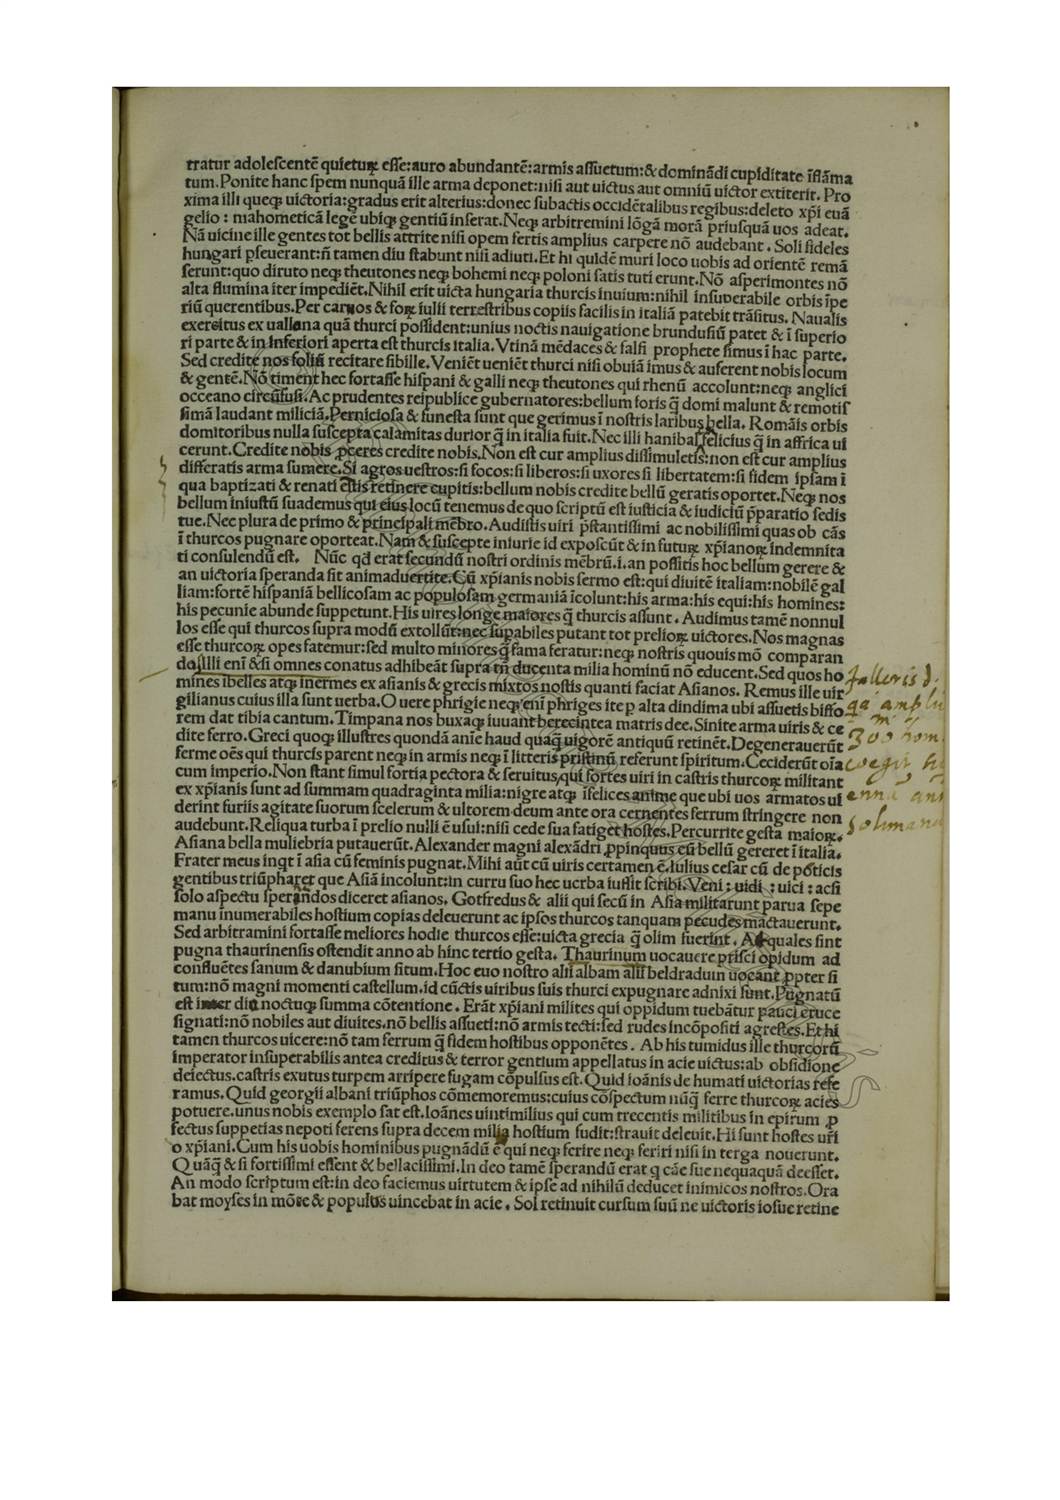 tratur adolescentē quietuꝝ esse:auro abundantē:armis assuetum:& dominādi cupiditate īflāma
tum.Ponite hanc spem nunquā ille arma deponet:nisi aut uictus aut omniū uictor extiterit. Pro
xima illi queqꝫ uictoria:gradus erit alterius:donec subactis occidētalibus regibus:deleto xp̄i euā
gelio : mahometicā legē ubiqꝫ gentiū inserat.Neqꝫ arbitremini lōgā morā priusquā uos adeat.
Nā uicine ille gentes tot bellis attrite nisi opem fertis amplius carpere nō audebant . Soli fideles
hungari pseuerant:n̄ tamen diu stabunt nisi adiuti.Et hi quidē muri loco uobis ad orientē remā
serunt:quo diruto neqꝫ theutones neqꝫ bohemi neqꝫ poloni satis tuti erunt.Nō asperi montes nō
alta flumina iter impediēt.Nihil erit uicta hungaria thurcis inuium:nihil insuperabile orbis īpe
riū querentibus.Per carnos & foꝝ iulii terrestribus copiis facilis in italiā patebit trāsitus. Naualis
exercitus ex uallona quā thurci possident:unius noctis nauigatione brundusiū patet & ī superio
ri parte & in inferiori aperta est thurcis italia. Vtinā mēdaces & falsi prophete simus ī hac parte.
Sed credite nos folia recitare sibille.Veniēt ueniēt thurci nisi obuiā imus & auferent nobis locum
& gentē.Nō timent hec fortasse hispani & galli neqꝫ theutones qui rhenū accolunt:neqꝫ anglici
occeano circūfusi.Ac prudentes reipublice gubernatores:bellum foris q̄ domi malunt & remotis
simā laudant miliciā.Perniciosa & funesta sunt que gerimus ī nostris laribus bella. Romāis orbis
domitoribus nulla suscepta calamitas durior q̄ in italia fuit. Nec illi hanibal felicius q̄ in affrica ui
cerunt.Credite nobis ꝓceres credite nobis.Non est cur amplius dissimuletis:non est cur amplius
differatis arma sumere.Si agros uestros:si focos:si liberos:si uxores si libertatem:si fidem ipsam ī
qua baptizati & renati estis retinere cupitis:bellum nobis credite bellū geratis oportet.Neqꝫ nos
bellum iniustū suademus qui eius locū tenemus de quo scriptū est iusticia & iudiciū p̄paratio sedis
tue.Nec plura de primo & principali mēbro.Audistis uiri p̄stantissimi ac nobilissimi quas ob cās
ī thurcos pugnare oporteat. Nam & suscepte iniurie id exposcūt & in futuꝝ xp̄ianoꝝ indemnita
ti consulendū est. Nūc qd erat secundū nostri ordinis mēbrū.i.an possitis hoc bellum gerere &
an uictoria speranda sit animaduertite.Cū xp̄ianis nobis sermo est:qui diuitē italiam:nobilē gal
liam:fortē hispaniā bellicosam ac populosam germaniā īcolunt:his arma:his equi:his homines:
his pecunie abunde suppetunt.His uires longe maiores q̄ thurcis assunt. Audimus tamē nonnul
los esse qui thurcos supra modū extollūt:nec supabiles putant tot prelioꝝ uictores.Nos magnas
esse thurcoꝝ opes fatemur:sed multo minores q̄ fama feratur:neqꝫ nostris quouis mō comparan
das.Illi enī & si omnes conatus adhibeāt supra m̄ ducenta milia hominū nō educent.Sed quos ho
mines ibelles atqꝫ inermes ex asianis & grecis mixtos nostis quanti faciat Asianos. Remus ille uir
gilianus cuius illa sunt uerba.O uere phrigie neqꝫ enī phriges ite p alta dindima ubi assuetis bisso
rem dat tibia cantum. Timpana nos buxaqꝫ iuuant berecintea matris dee.Sinite arma uiris & ce
dite ferro.Greci quoqꝫ illustres quondā anīe haud quaq̄ uigorē antiquū retinēt.Degenerauerūt
ferme oēs qui thurcis parent neqꝫ in armis neqꝫ ī litteris pristinū referunt spiritum.Ceciderūt oīa
cum imperio.Non stant simul fortia pectora & seruitus,qui fortes uiri in castris thurcoꝝ militant
ex xp̄ianis sunt ad summam quadraginta milia:nigre atqꝫ īfelices anime que ubi uos armatos ui
derint furiis agitate suorum scelerum & ultorem deum ante ora cernentes ferrum stringere non
audebunt.Reliqua turba ī prelio nulli ē usui:nisi cede sua fatiget hostes.Percurrite gesta maioꝝ.
Asiana bella muliebria putauerūt. Alexander magni alexādri ꝓpinquus cū bellū gereret ī italia.
Frater meus inqt ī asia cū feminis pugnat. Mihi aūt cū uiris certamen ē.Iulius cesar cū de pōticis
gentibus triūpharet que Asiā incolunt:in curru suo hec uerba iussit scribi.Veni : uidi : uici : acsi
solo aspectu sperandos diceret asianos. Gotfredus & alii qui secū in Asia militarunt parua sepe
manu inumerabiles hostium copias deleuerunt ac ipsos thurcos tanquam pecudes mactauerunt.
Sed arbitramini fortasse meliores hodie thurcos esse:uicta grecia q̄ olim fuerint . At quales sint
pugna thaurinensis ostendit anno ab hinc tertio gesta. Thaurinum uocauere prisci opidum ad
confluētes sanum & danubium situm.Hoc euo nostro alii albam alii beldraduin uocant ꝓpter si
tum:nō magni momenti castellum.id cūctis uiribus suis thurci expugnare adnixi sunt.Pugnatū
est inter diu noctuqꝫ summa cōtentione . Erāt xp̄iani milites qui oppidum tuebātur pauci cruce
signati:nō nobiles aut diuites.nō bellis assueti:nō armis tecti:sed rudes incōpositi agrestes.Et hi
tamen thurcos uicere:nō tam ferrum q̄ fidem hostibus opponētes . Ab his tumidus ille thurcorū
imperator insuperabilis antea creditus & terror gentium appellatus in acie uictus:ab obsidione
deiectus.castris exutus turpem arripere fugam cōpulsus est.Quid ioānis de humati uictorias refe
ramus.Quid georgii albani triūphos cōmemoremus:cuius cōspectum nūq̄ ferre thurcoꝝ acies
potuere.unus nobis exemplo sat est.Ioānes uintimilius qui cum trecentis militibus in epirum ꝓ
fectus suppetias nepoti ferens supra decem milia hostium fudit:strauit deleuit.Hi sunt hostes ur̄i
o xp̄iani.Cum his uobis hominibus pugnādū ē qui neqꝫ ferire neqꝫ feriri nisi in terga nouerunt.
Quāq̄ & si fortissimi essent & bellacissimi.In deo tamē sperandū erat q cāe sue nequaquā deesset.
An modo scriptum est:in deo faciemus uirtutem & ipse ad nihilū deducet inimicos nostros.Ora
bat moyses in mōte & populus uincebat in acie . Sol retinuit cursum suū ne uictoris iosue retine
falleris d.
qa amplu
300 hom
coegit
solimanu